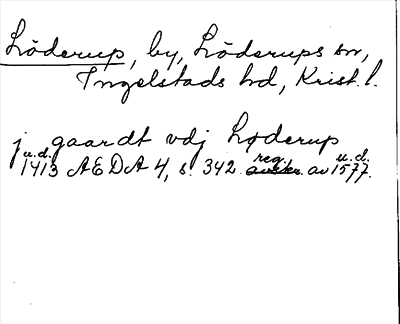 Löderup, by, Löderups sn,
Ingelstads hd, Krist. l.
j gaardt vdj Løderup
u.d. reg. u.d.
1413 AEDA 4, s. 342 av 1577.